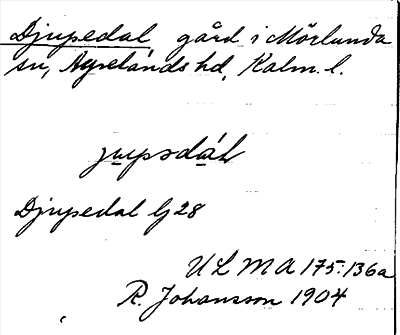 Djupedal gård i Mörlunda
sn, Aspelands hd, Kalm. l.
Djupedal Gj 28
ULMA 175:136a
R. Johansson 1904